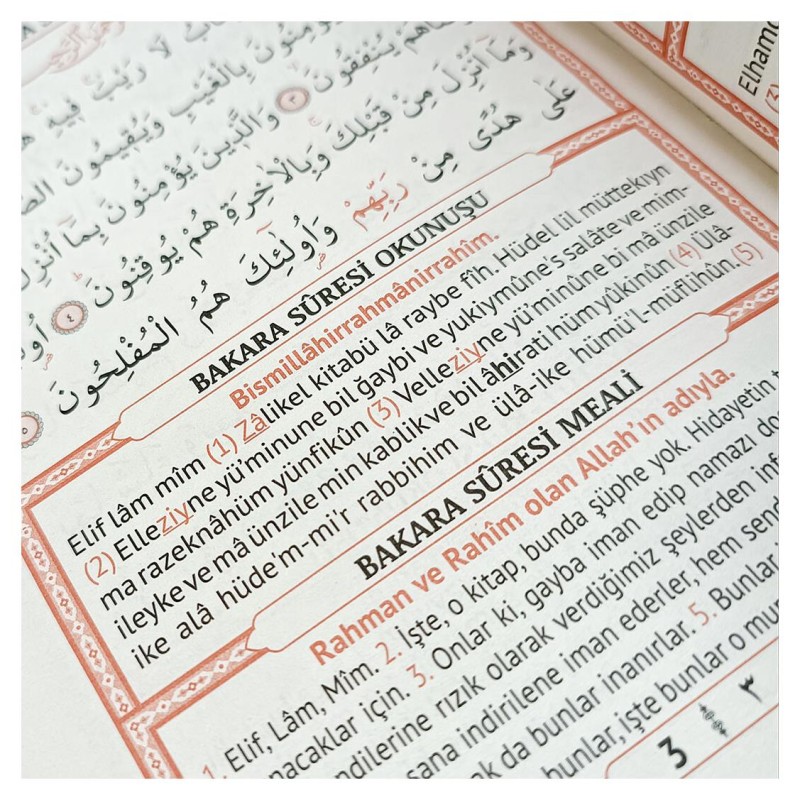 لَا رَيْبَ فِيهِ
يُؤْمِنُونَ بِالْغَيْبِ وَيُقِيمُونَ
يُنْفِقُونَ ٣ وَالَّذِينَ يُؤْمِنُونَ بِمَا أُنْزِلَ
وَمَا أُنْزِلَ مِنْ قَبْلِكَ وَبِالْاٰخِرَةِ هُمْ يُوقِنُونَ ٤
عَلٰى هُدًى مِنْ رَبِّهِمْ وَأُولٰئِكَ هُمُ الْمُفْلِحُونَ ٥
BAKARA SÛRESİ OKUNUŞU
Bismillâhirrahmânirrahîm.
Elif lâm mîm (1) Zâlikel kitabü lâ raybe fîh. Hüdel lil müttekıyn
(2) Elleziyne yü'minune bil ğaybi ve yukiymûne's salâte ve mim-
ma razeknâhüm yünfikûn (3) Velleziyne yü'minûne bi mâ ünzile
ileyke ve mâ ünzile min kablik ve bil âhirati hüm yûkinûn (4) Ülâ-
ike alâ hüde'm-mi'r rabbihim ve ülâ-ike hümü'l-müflihûn. (5)
BAKARA SÛRESİ MEALİ
Rahman ve Rahîm olan Allah'ın adıyla.
1. Elif, Lâm, Mîm. 2. İşte, o kitap, bunda şüphe yok. Hidayetin
için. 3. Onlar ki, gayba iman edip namazı
rızık olarak verdiğimiz şeylerden
sana indirilene iman ederler, hem
da bunlar inanırlar. 5. Bunlar
bunlar, işte bunlar o
3 ٣
Elhamd